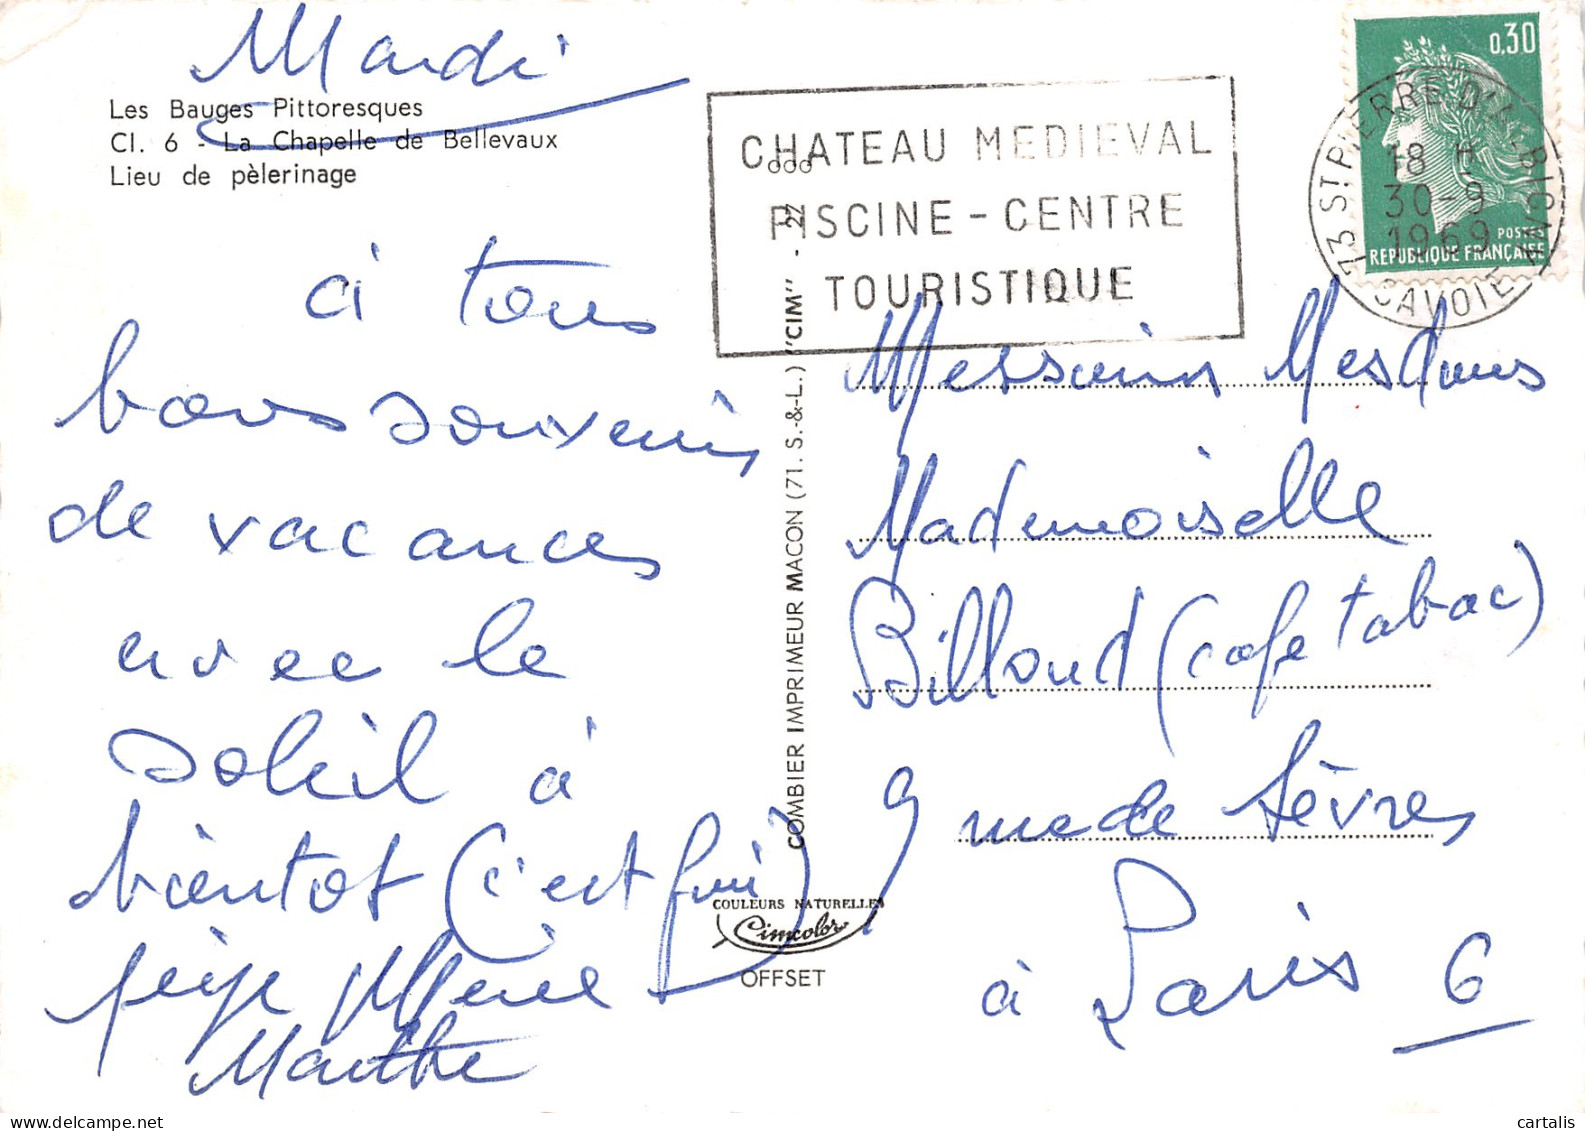 Mardi
Les Bauges Pittoresques
Cl. 6 - La Chapelle de Bellevaux
Lieu de pèlerinage
à tous
bons souvenirs
de vacances
avec le
soleil à
bientot (c'est fini)
Marthe
CHATEAU MEDIEVAL
PISCINE - CENTRE
TOURISTIQUE
0,30
POSTES
REPUBLIQUE FRANÇAISE
73 ST PIERRE D'ALBIGNY
18 H
30-9
1969
SAVOIE
COMBIER IMPRIMEUR MACON (71. S.-&-L.) "CIM" - 2Z
COULEURS NATURELLES
Cimcolor
OFFSET
Messieurs Mesdames
Mademoiselle
Billoud (cafe tabac)
9 rue de Sèvres
à Paris 6
cartalis.com